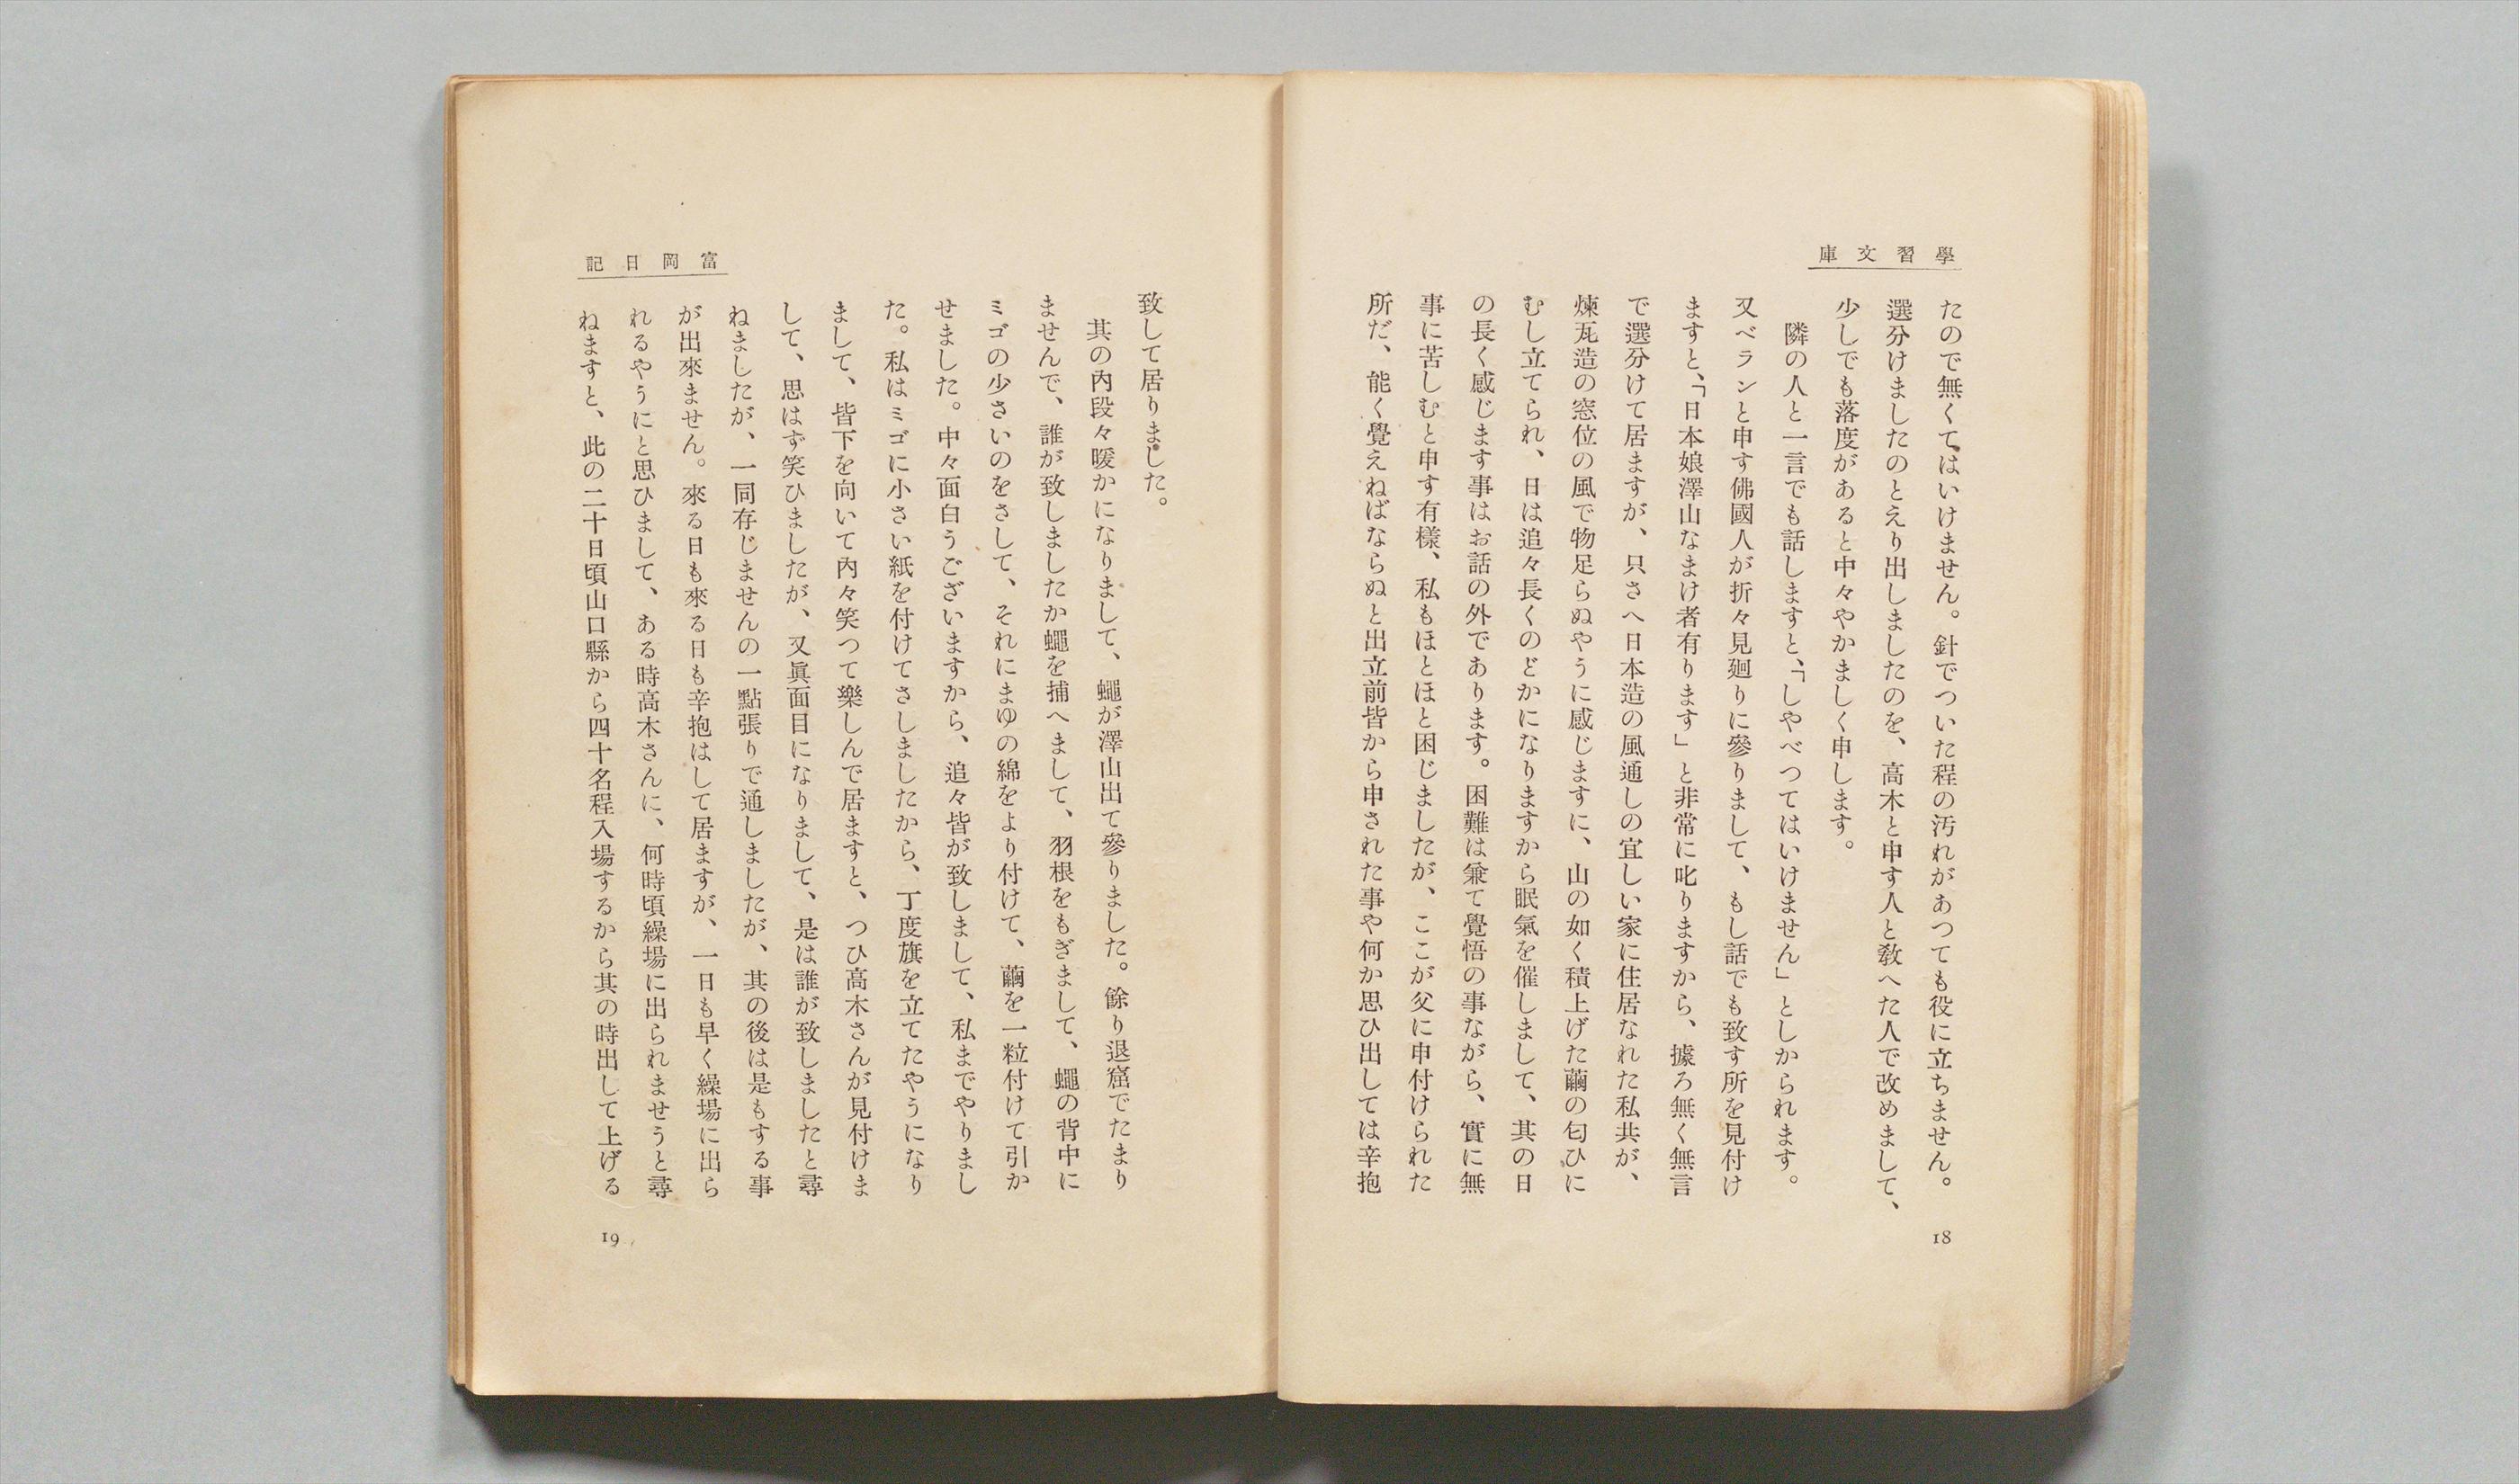 學習文庫
たので無くてはいけません。針でついた程の汚れがあつても役に立ちません。
選分けましたのとえり出しましたのを、高木と申す人と敎へた人で改めまして、
少しでも落度があると中々やかましく申します。
隣の人と一言でも話しますと、「しやべつてはいけません」としかられます。
又ベランと申す佛國人が折々見廻りに參りまして、もし話でも致す所を見付け
ますと、「日本娘澤山なまけ者有ります」と非常に叱りますから、據ろ無く無言
で選分けて居ますが、只さへ日本造の風通しの宜しい家に住居なれた私共が、
煉瓦造の窓位の風で物足らぬやうに感じますに、山の如く積上げた繭の匂ひに
むし立てられ、日は追々長くのどかになりますから眠氣を催しまして、其の日
の長く感じます事はお話の外であります。困難は兼て覺悟の事ながら、實に無
事に苦しむと申す有樣、私もほとほと困じましたが、ここが父に申付けられた
所だ、能く覺えねばならぬと出立前皆から申された事や何か思ひ出しては辛抱
18
富岡日記
致して居りました。
其の內段々暖かになりまして、蠅が澤山出て參りました。餘り退窟でたまり
ませんで、誰が致しましたか蠅を捕へまして、羽根をもぎまして、蠅の背中に
ミゴの少さいのをさして、それにまゆの綿をより付けて、繭を一粒付けて引か
せました。中々面白うございますから、追々皆が致しまして、私までやりまし
た。私はミゴに小さい紙を付けてさしましたから、丁度旗を立てたやうになり
まして、皆下を向いて內々笑つて樂しんで居ますと、つひ高木さんが見付けま
して、思はず笑ひましたが、又眞面目になりまして、是は誰が致しましたと尋
ねましたが、一同存じませんの一點張りで通しましたが、其の後は是もする事
が出來ません。來る日も來る日も辛抱はして居ますが、一日も早く繰場に出ら
れるやうにと思ひまして、ある時高木さんに、何時頃繰場に出られませうと尋
ねますと、此の二十日頃山口縣から四十名程入場するから其の時出して上げる
19